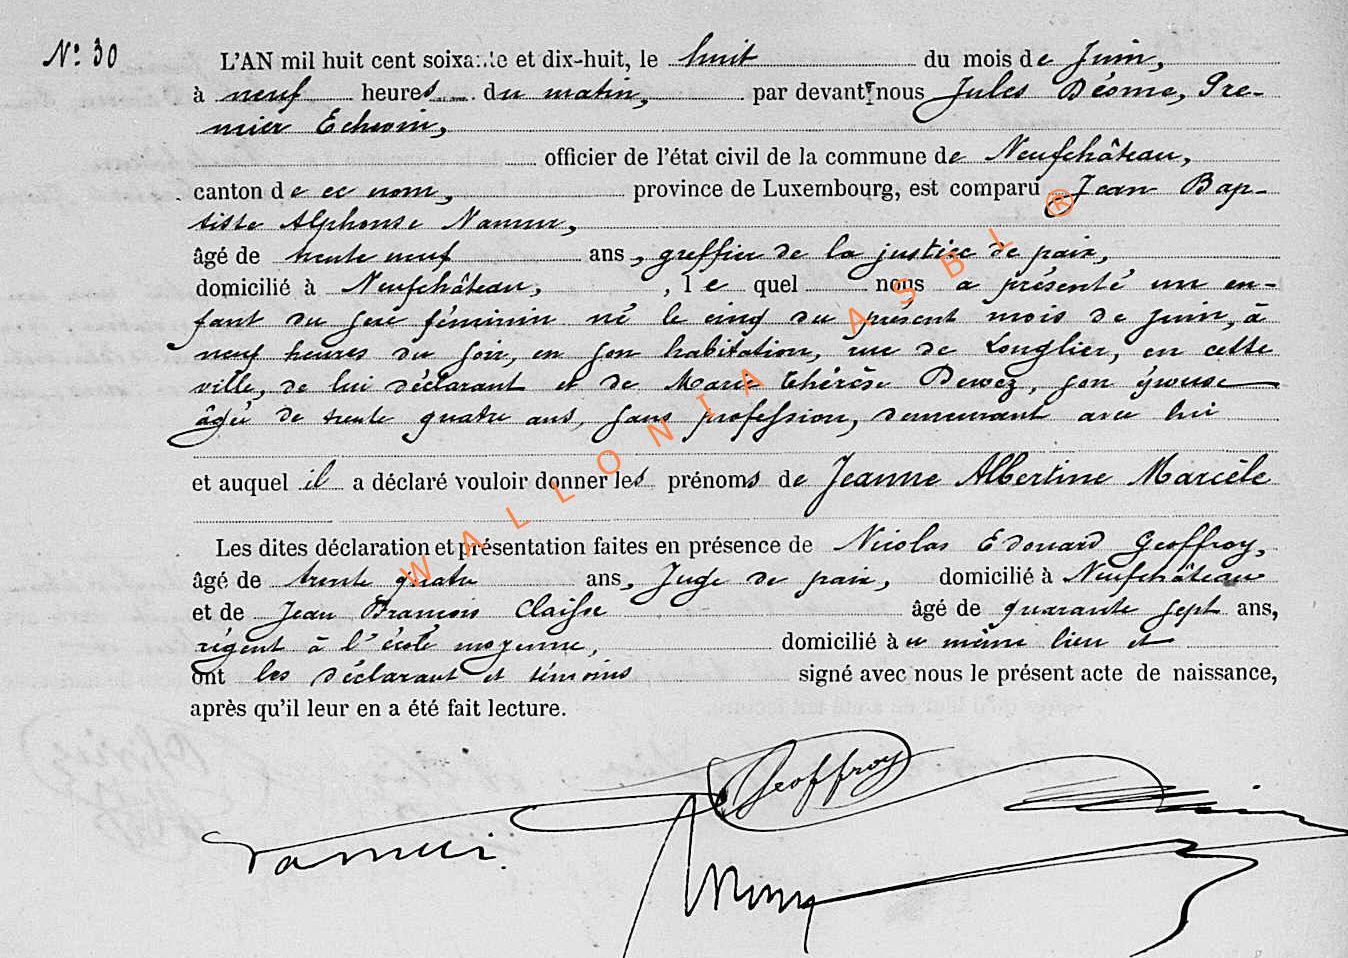 N° 30
L'AN mil huit cent soixante et dix-huit, le huit du mois de Juin,
à neuf heures du matin, par devant nous Jules Désome, Pre-
mier Echevin,
officier de l'état civil de la commune de Neufchâteau,
canton de ce nom, province de Luxembourg, est comparu Jean Bap-
tiste Alphonse Namur,
âgé de trente neuf ans, greffier de la justice de paix,
domicilié à Neufchâteau, lequel nous a présenté un en-
fant du sexe féminin né le cinq du présent mois de juin, à
neuf heures du soir, en son habitation, rue de Longlier, en cette
ville, de lui déclarant et de Marie Thérèse Dewez, son épouse
âgée de trente quatre ans, sans profession, demeurant avec lui
et auquel il a déclaré vouloir donner les prénoms de Jeanne Albertine Marcèle
Les dites déclaration et présentation faites en présence de Nicolas Edouard Geoffroy,
âgé de trente quatre ans, Juge de paix, domicilié à Neufchâteau
et de Jean François Claisse âgé de quarante sept ans,
régent à l'école moyenne, domicilié à ce même lieu et
ont les déclarant et témoins signé avec nous le présent acte de naissance,
après qu'il leur en a été fait lecture.
Geoffroy
Namur.
WALLONIA ASBL ®